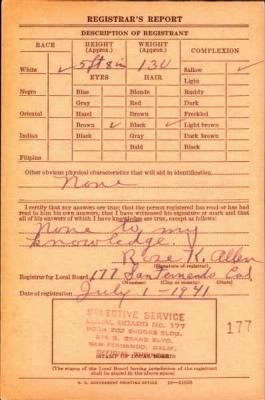 REGISTRAR'S REPORT
DESCRIPTION OF REGISTRANT
RACE HEIGHT (Approx.) WEIGHT (Approx.) COMPLEXION
White ✓ 5 ft 8 in 130 Sallow ✓
EYES HAIR Light
Negro Blue Blonde Ruddy
Gray Red Dark
Oriental Hazel Brown Freckled
Brown ✓ Black ✓ Light brown
Indian Black Gray Dark brown
Bald Black
Filipino
Other obvious physical characteristics that will aid in identification
None
I certify that my answers are true; that the person registered has read or has had
read to him his own answers; that I have witnessed his signature or mark and that
all of his answers of which I have knowledge are true, except as follows:
None to my
knowledge.
Rose K. Allen
(Signature of registrar)
Registrar for Local Board 177 San Fernando Cal
(Number) (City or county) (State)
Date of registration July 1-1941
SELECTIVE SERVICE
LOCAL BOARD NO. 177
BLDG.
S. BRAND BLVD.
SAN FERNANDO, CALIF.
(STAMP OF LOCAL BOARD)
177
(The stamp of the Local Board having jurisdiction of the registrant
shall be placed in the above space.)
U. S. GOVERNMENT PRINTING OFFICE